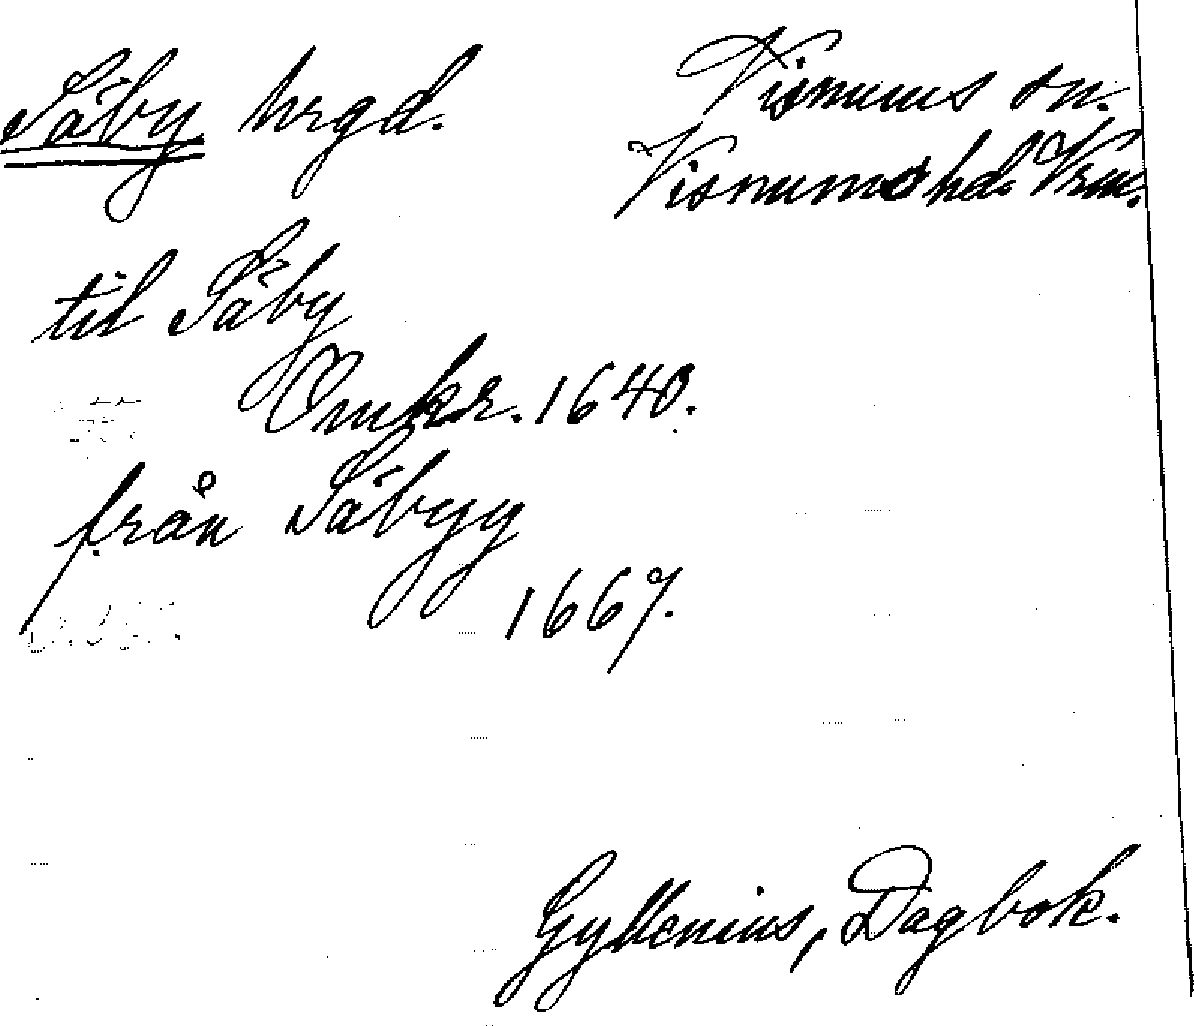 Säby hrgd.
Visnums sn.
Visnums hd. Vrm.
til Säby
Omkr. 1640.
från Säbyy
1667.
Gyllenius, Dagbok.